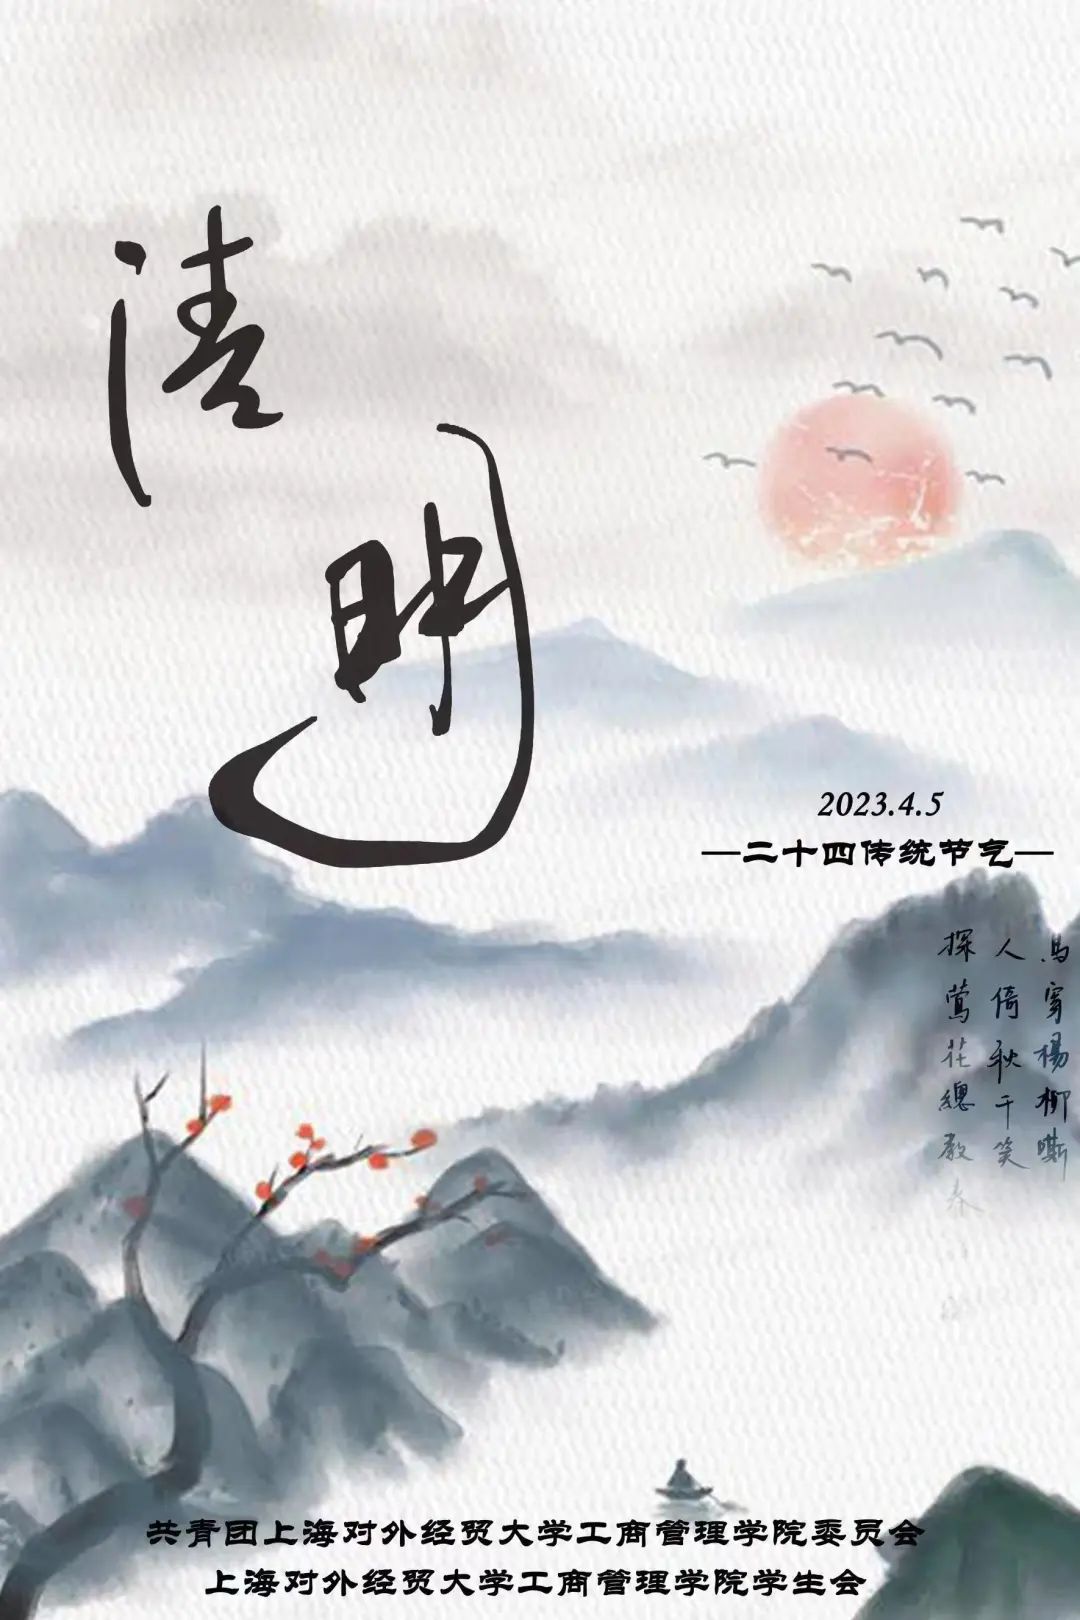 清明
2023.4.5
—二十四传统节气—
馬穿楊柳嘶
人倚秋千笑
探莺花總教春
共青团上海对外经贸大学工商管理学院委员会
上海对外经贸大学工商管理学院学生会